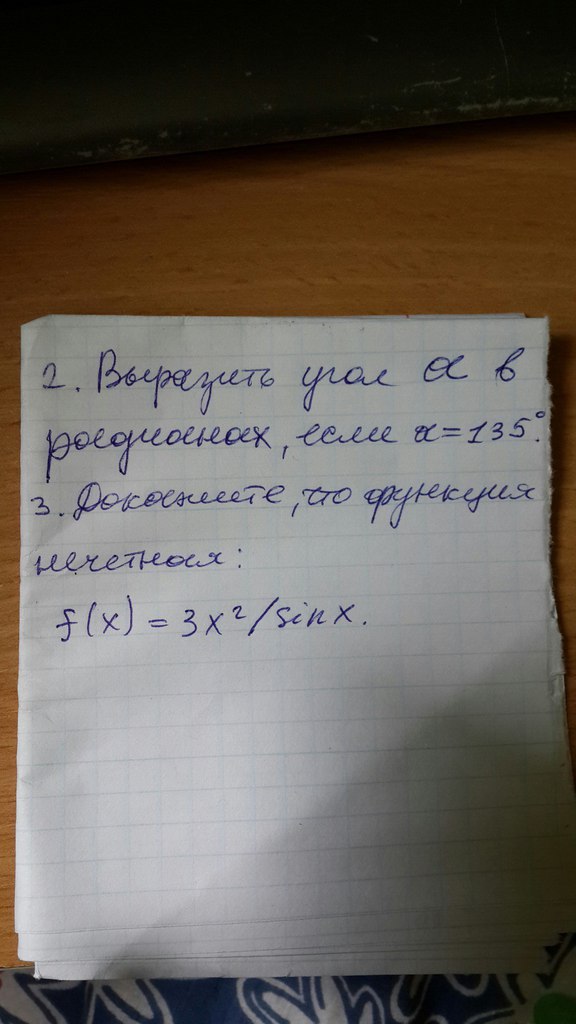 2. Выразить угол α в
радианах, если α=135°.
3. Докажите, что функция
нечетная:
f(x) = 3x²/sinx.